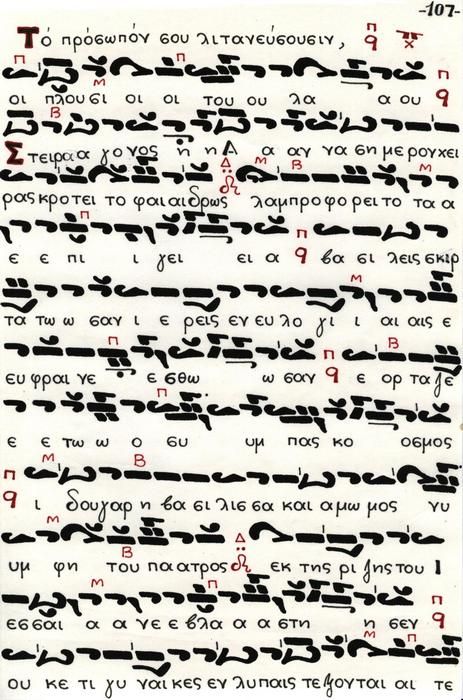 -107-
Τό πρόσωπόν σου λιτανεύσουσιν,
οι πλου σι οι οι του ου λα α ου
Στειραα γο νος η η Α α αγ να ση με ρον χει
ρας κρο τει το φαι αι δρως λαμ προ φο ρει το τα α
ε ε πι ι γει ει α βα σι λεις σκιρ
τα τω ω σαν ι ε ρεις εν ευ λο γι ι αι αις ε
ευ φραι νε ε σθω ω σαν ε ορ τα ζε
ε ε τω ω ο συ υμ πας κο οσμος
ι δου γαρ η βα σι λισ σα και α μω μος νυ
υμ φη του πα ατρος εκ της ρι ζης του Ι
εσσαι α α νε ε βλα α α στη η σεν
ου κε τι γυ ναι κες εν λυπαις τε ξονται αι τε